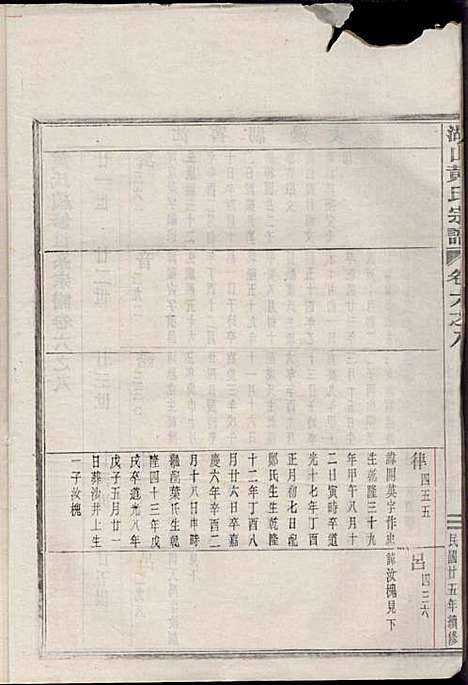 湖山黃氏宗譜
卷六之八
民國廿五年續修
律 四五五
諱開英字作忠
生乾隆三十九
年甲午八月十
二日寅時卒道
光十七年丁酉
正月初七日配
鄭氏生乾隆
十二年丁酉八
月廿六日卒嘉
慶六年辛酉二
月十八日申時
繼配葉氏生乾
隆四十三年戊
戌卒道光八年
戊子五月廿一
日葬汝井上生
一子汝槐
呂 四二六
諱汝槐見下